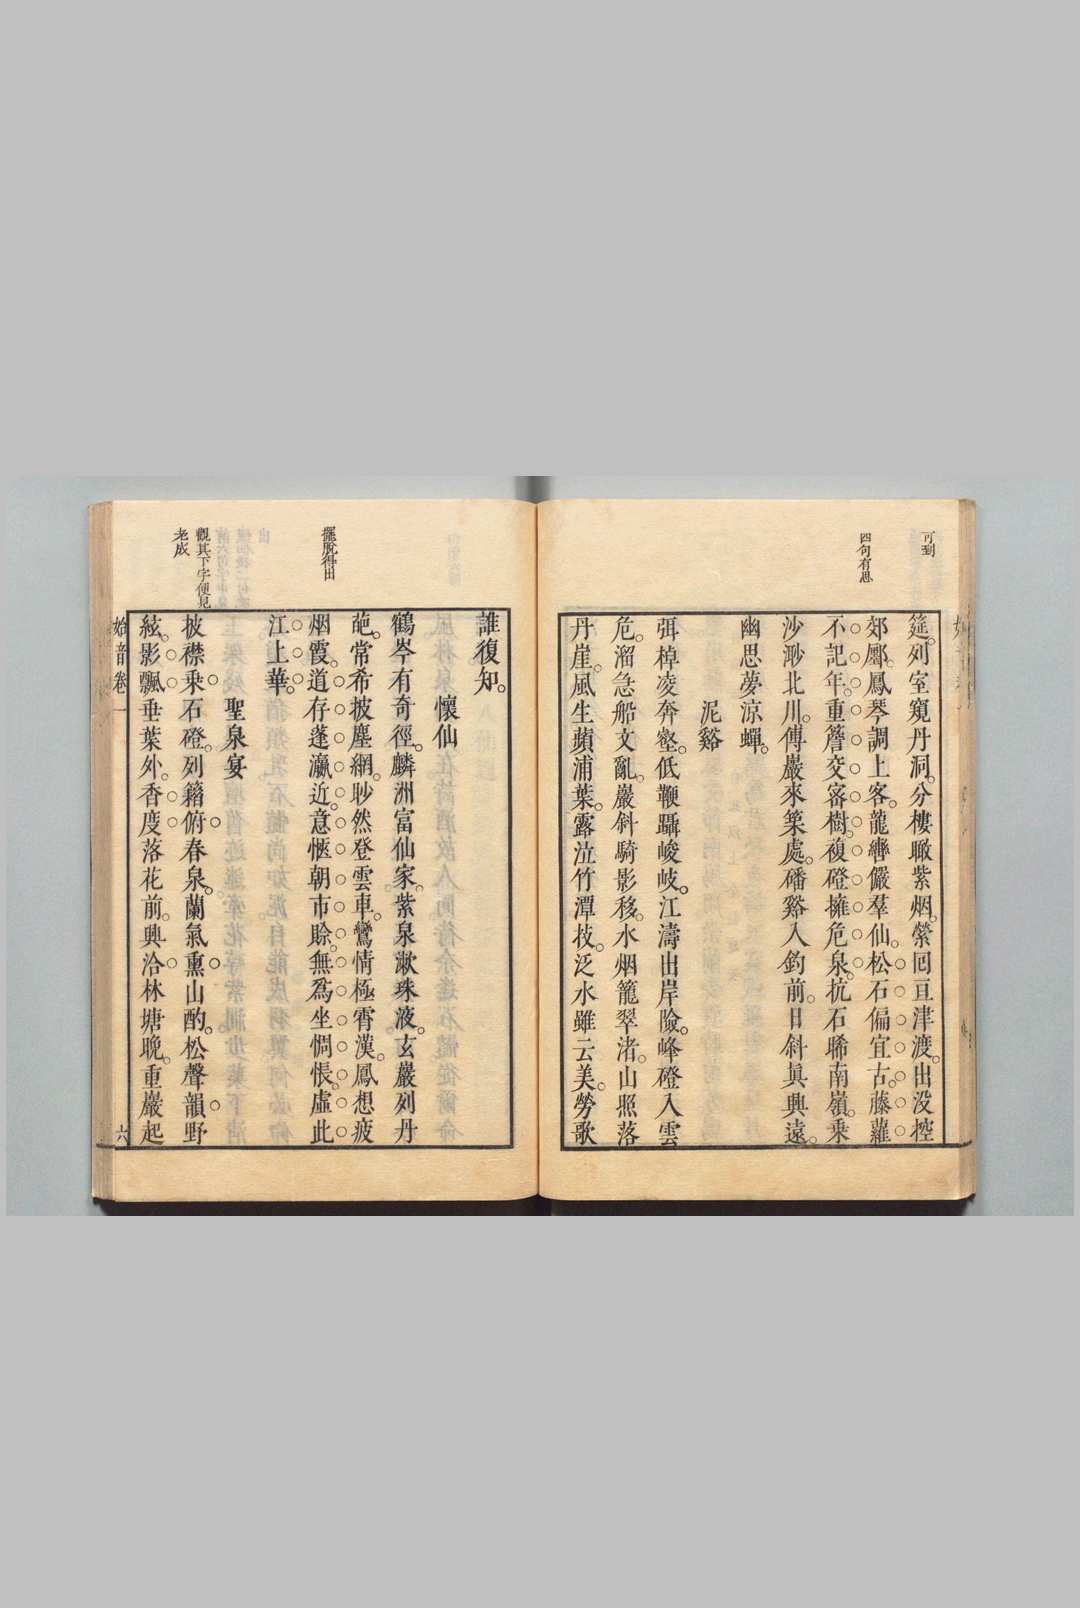 可到
四句有思
筵。列室窺丹洞。分樓瞰紫烟。縈囘亘津渡。出没控
郊鄽。鳳琴調上客。龍轡儼羣仙。松石偏宜古。藤蘿
不記年。重簷交密樹。複磴擁危泉。抗石晞南嶺。乗
沙渺北川。傅巖來築處。磻谿入釣前。日斜眞興遠。
幽思夢凉蟬。
泥谿
弭棹凌奔壑。低鞭躡峻岐。江濤出岸險。峰磴入雲
危。溜急船文亂。巖斜騎影移。水烟籠翠渚。山照落
丹崖。風生蘋浦葉。露泣竹潭枝。泛水雖云美。勞歌
誰復知。
懷仙
鶴岑有奇徑。麟洲富仙家。紫泉漱珠液。玄巖列丹
葩。常希披塵網。眇然登雲車。鸞情極霄漢。鳳想疲
烟霞。道存蓬瀛近。意愜朝市賒。無爲坐惆悵。虛此
江上華。
聖泉宴
披襟乗石磴。列籍俯春泉。蘭氣熏山酌。松聲韻野
絃。影飄垂葉外。香度落花前。興洽林塘晚。重巖起
擺脫得出
觀其下字便見
老成
始音卷一
六